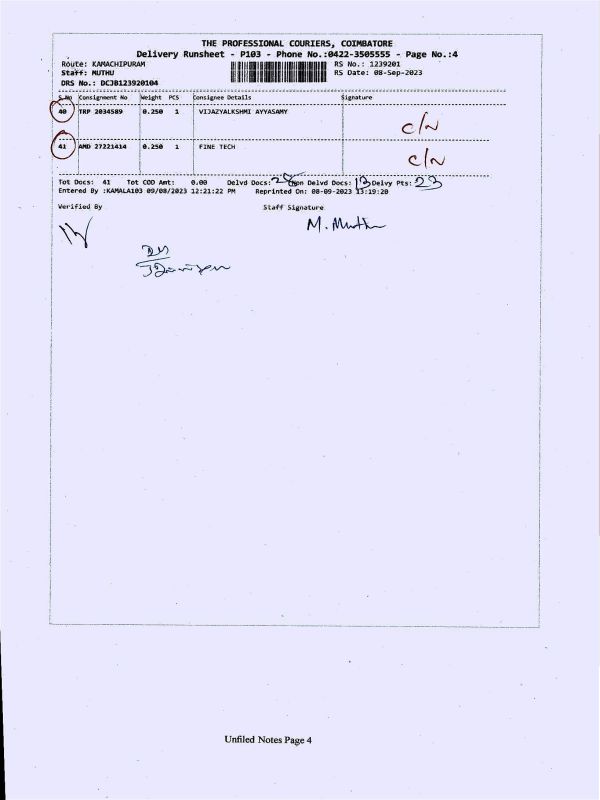 THE PROFESSIONAL COURIERS, COIMBATORE
Delivery Runsheet - P103 - Phone No.:0422-3505555 - Page No.:4
Route: KAMACHIPURAM RS No.: 1239201
Staff: MUTHU RS Date: 08-Sep-2023
DRS No.: DCJB123920104
S.No Consignment No Weight PCS Consignee Details Signature
40 TRP 2034589 0.250 1 VIJAZYALKSHMI AYYASAMY c/N
41 AMD 27221414 0.250 1 FINE TECH c/N
Tot Docs: 41 Tot COD Amt: 0.00 Delvd Docs: 28 Non Delvd Docs: 13 Delvy Pts: 23
Entered By :KAMALA103 09/08/2023 12:21:22 PM Reprinted On: 08-09-2023 13:19:20
Verified By Staff Signature
M. Muthu
Unfiled Notes Page 4